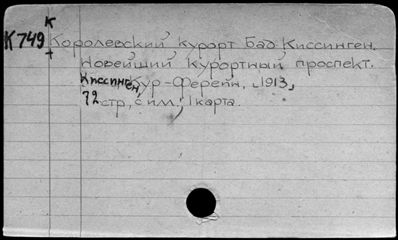 К
К749 Королевский курорт Бад Киссинген.
Новейший курортный проспект.
Киссинген, Кур-Ферейн, 1913,
72 стр, с илл, 1 карта.